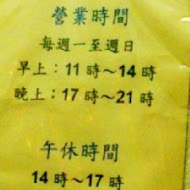 營業時間
每週一至週日
早上：11時～14時
晚上：17時～21時
午休時間
14時～17時